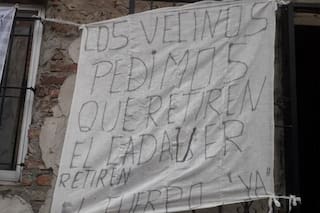 LOS VECINOS
PEDIMOS
QUE RETIREN
EL CADAVER
RETIREN
EL CUERPO "YA"